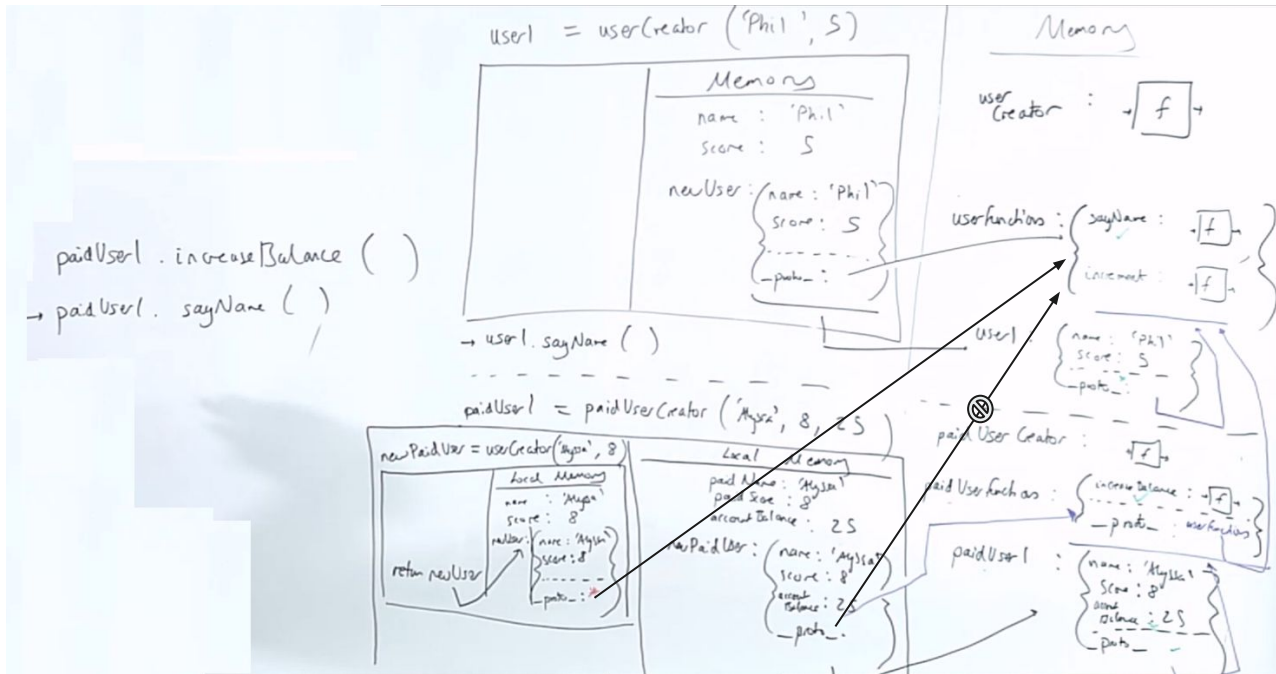 paidUser1 . increaseBalance ( )
→ paidUser1 . sayName ( )
user1 = userCreator ('Phil', 5)
Memory
name : 'Phil'
score : 5
newUser : { name : 'Phil'
score : 5
__proto__ : }
→ user1 . sayName ( )
paidUser1 = paidUserCreator ('Alyssa', 8, 25)
newPaidUser = userCreator('Alyssa', 8)
Local Memory
name : 'Alyssa'
score : 8
newUser : { name : 'Alyssa'
score : 8
__proto__ : }
return newUser
Local Memory
paidName : 'Alyssa'
paidScore : 8
accountBalance : 25
newPaidUser : { name : 'Alyssa'
score : 8
account
Balance : 25
__proto__ : }
Memory
user
Creator : f
userFunctions : { sayName : f
increment : f }
user1 : { name : 'Phil'
score : 5
__proto__ : }
paidUserCreator : f
paidUserFunctions : { increaseBalance : f
__proto__ : userFunctions }
paidUser1 : { name : 'Alyssa'
score : 8
account
Balance : 25
__proto__ }